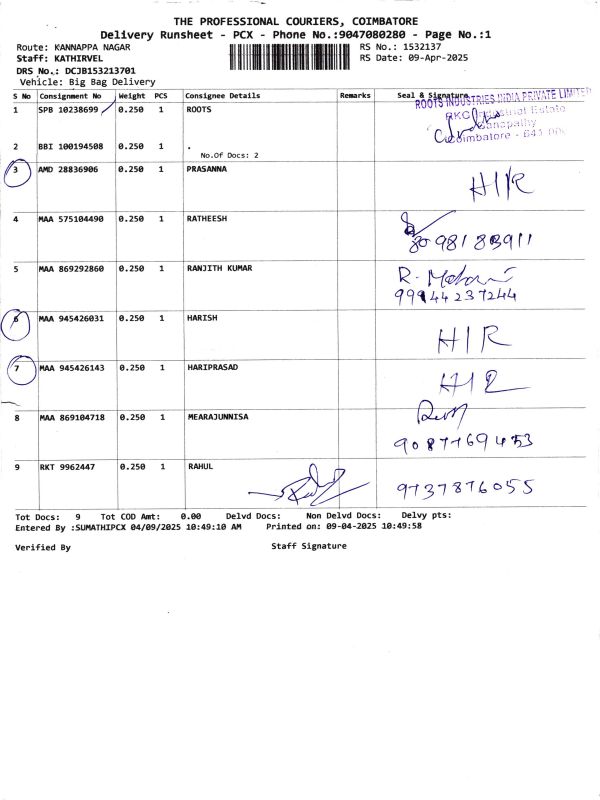 THE PROFESSIONAL COURIERS, COIMBATORE
Delivery Runsheet - PCX - Phone No.:9047080280 - Page No.:1
Route: KANNAPPA NAGAR RS No.: 1532137
Staff: KATHIRVEL RS Date: 09-Apr-2025
DRS No.: DCJB153213701
Vehicle: Big Bag Delivery
S No Consignment No Weight PCS Consignee Details Remarks Seal & Signature
ROOTS INDUSTRIES INDIA PRIVATE LIMITED
1 SPB 10238699 0.250 1 ROOTS
RKG Industrial Estate
Ganapathy
Coimbatore - 641 006
2 BBI 100194508 0.250 1 .
No.Of Docs: 2
3 AMD 28836906 0.250 1 PRASANNA
H/R
4 MAA 575104490 0.250 1 RATHEESH
5 MAA 869292860 0.250 1 RANJITH KUMAR
99944237244
6 MAA 945426031 0.250 1 HARISH
H/R
7 MAA 945426143 0.250 1 HARIPRASAD
H/R
8 MAA 869104718 0.250 1 MEARAJUNNISA
9087769453
9 RKT 9962447 0.250 1 RAHUL
9737876055
Tot Docs: 9 Tot COD Amt: 0.00 Delvd Docs: Non Delvd Docs: Delvy pts:
Entered By :SUMATHIPCX 04/09/2025 10:49:10 AM Printed on: 09-04-2025 10:49:58
Verified By Staff Signature